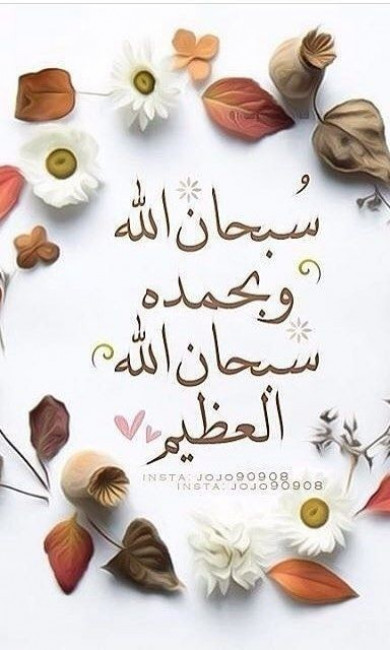 سُبحان الله
وبحمده
سبحان الله
العظيم
INSTA: JOJO90908
INSTA: JOJO90908